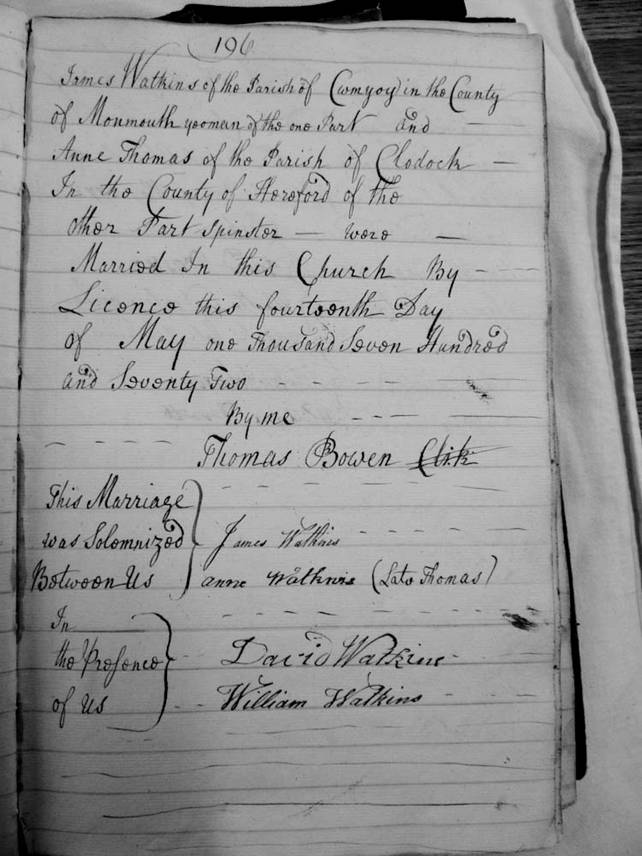 196
James Watkins of the Parish of Cwmyoy in the County
of Monmouth yeoman of the one Part and —
Anne Thomas of the Parish of Clodock —
In the County of Hereford of the
other Part spinster — were —
Married In this Church By - - -
Licence this fourteenth Day
of May one Thousand Seven Hundred
and Seventy Two - - - -
By me - - -
Thomas Bowen Clik
This Marriage
was Solemnized } James Watkins
Between Us anne Watkins (Late Thomas)
In
the Presence } David Watkins
of Us - - William Watkins